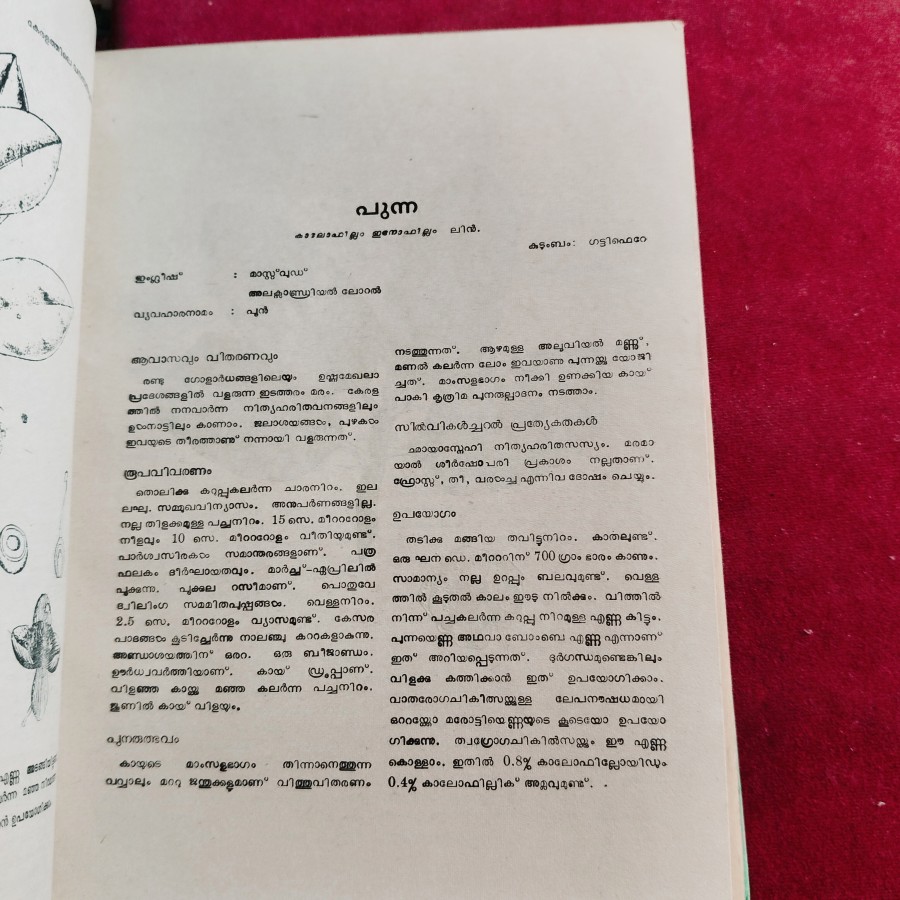 പുന്ന
കാലോഫില്ലം ഇനോഫില്ലം ലിൻ.
കുടുംബം: ഗട്ടിഫെറേ
ഇംഗ്ലീഷ് : മാസ്റ്റ്‌വുഡ്
അലക്സാണ്ഡ്രിയൽ ലോറൽ
വ്യവഹാരനാമം : പൂൻ
ആവാസവും വിതരണവും
രണ്ടു ഗോളാർധങ്ങളിലെയും ഉഷ്ണമേഖലാ
പ്രദേശങ്ങളിൽ വളരുന്ന ഇടത്തരം മരം. കേരള
ത്തിൽ നനവാർന്ന നിത്യഹരിതവനങ്ങളിലും
ഉൾനാട്ടിലും കാണാം. ജലാശയങ്ങൾ, പുഴകൾ
ഇവയുടെ തീരത്താണു് നന്നായി വളരുന്നത്.
രൂപവിവരണം
തൊലിക്കു കറുപ്പുകലർന്ന ചാരനിറം. ഇല
ലഘു. സമ്മുഖവിന്യാസം. അനുപർണങ്ങളില്ല.
നല്ല തിളക്കമുള്ള പച്ചനിറം. 15 സെ. മീറററോളം
നീളവും 10 സെ. മീറററോളം വീതിയുമുണ്ട്.
പാർശ്വസിരകൾ സമാന്തരങ്ങളാണ്. പത്ര
ഫലകം ദീർഘായതവും. മാർച്ച്-ഏപ്രിലിൽ
പൂക്കുന്നു. പൂക്കുല റസീമാണ്. പൊതുവേ
ദ്വിലിംഗ സമമിതപുഷ്പങ്ങൾ. വെള്ളനിറം.
2.5 സെ. മീറററോളം വ്യാസമുണ്ട്. കേസര
പാദങ്ങൾ കൂടിച്ചേർന്നു നാലഞ്ചു കററകളാകുന്നു.
അണ്ഡാശയത്തിന് ഒരറ. ഒരു ബീജാണ്ഡം.
ഊർധ്വവർത്തിയാണ്. കായ് ഡ്രൂപ്പാണ്.
വിളഞ്ഞ കായ്ക്കു മഞ്ഞ കലർന്ന പച്ചനിറം.
ജൂണിൽ കായ് വിളയും.
പുനരുത്ഭവം
കായുടെ മാംസളഭാഗം തിന്നാനെത്തുന്ന
വവ്വാലും മററു ജന്തുക്കളുമാണ് വിത്തുവിതരണം
നടത്തുന്നത്. ആഴമുള്ള അലൂവിയൽ മണ്ണ്,
മണൽ കലർന്ന ലോം ഇവയാണു പുന്നയ്ക്കു യോജി
ച്ചത്. മാംസളഭാഗം നീക്കി ഉണക്കിയ കായ്
പാകി കൃത്രിമ പുനരുല്പാദനം നടത്താം.
സിൽവികൾച്ചറൽ പ്രത്യേകതകൾ
ഛായാസ്നേഹി നിത്യഹരിതസസ്യം. മരമാ
യാൽ ശീർഷോപരി പ്രകാശം നല്ലതാണ്.
ഫ്രോസ്റ്റ്, തീ, വരൾച്ച എന്നിവ ദോഷം ചെയ്യും.
ഉപയോഗം
തടിക്കു മങ്ങിയ തവിട്ടുനിറം. കാതലുണ്ട്.
ഒരു ഘന ഡെ. മീറററിന് 700 ഗ്രാം ഭാരം കാണും.
സാമാന്യം നല്ല ഉറപ്പും ബലവുമുണ്ട്. വെള്ള
ത്തിൽ കൂടുതൽ കാലം ഈടു നിൽക്കും. വിത്തിൽ
നിന്ന് പച്ചകലർന്ന കറുപ്പു നിറമുള്ള എണ്ണ കിട്ടും.
പുന്നയെണ്ണ അഥവാ ബോംബെ എണ്ണ എന്നാണ്
ഇത് അറിയപ്പെടുന്നത്. ദുർഗന്ധമുണ്ടെങ്കിലും
വിളക്കു കത്തിക്കാൻ ഇത് ഉപയോഗിക്കാം.
വാതരോഗചികീത്സയ്ക്കുള്ള ലേപനൗഷധമായി
ഒററയ്ക്കോ മരോട്ടിയെണ്ണയുടെ കൂടെയോ ഉപയോ
ഗിക്കുന്നു. ത്വഗ്രോഗചികിൽസയ്ക്കും ഈ എണ്ണ
കൊള്ളാം. ഇതിൽ 0.8% കാലോഫില്ലോയിഡും
0.4% കാലോഫില്ലിക് അമ്ലവുമുണ്ട്.